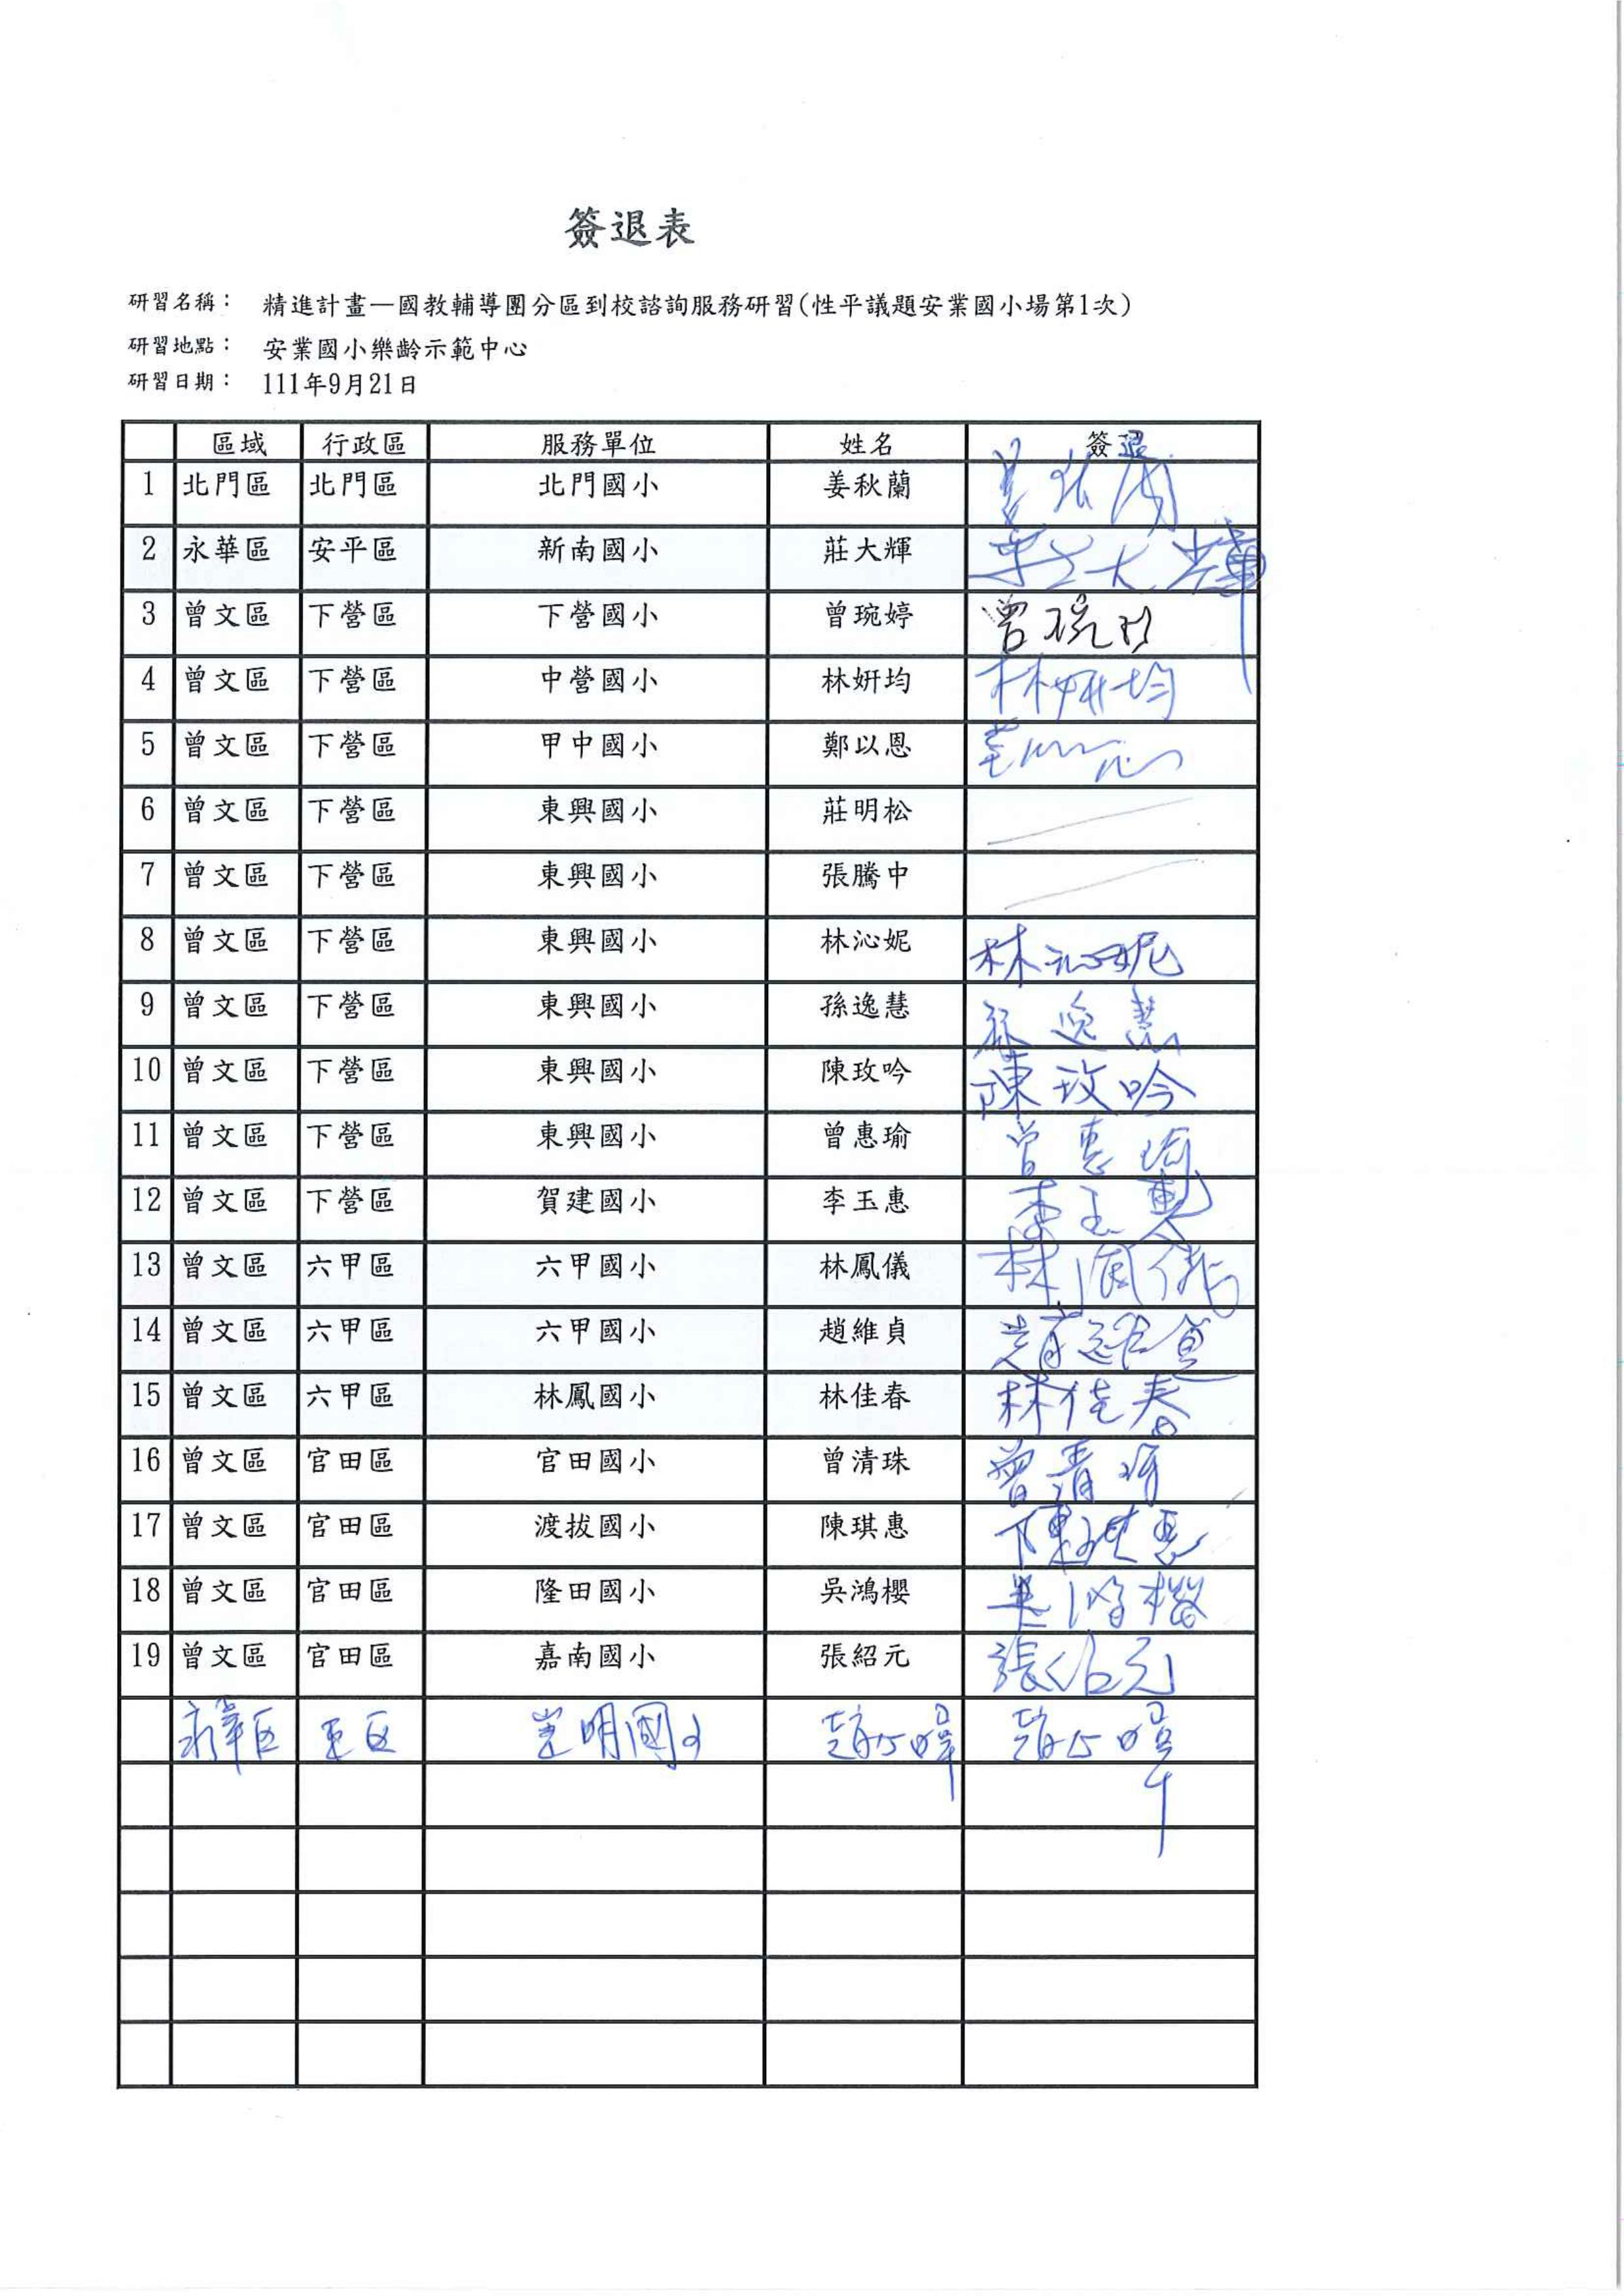 簽退表
研習名稱： 精進計畫—國教輔導團分區到校諮詢服務研習(性平議題安業國小場第1次)
研習地點： 安業國小樂齡示範中心
研習日期： 111年9月21日
區域 行政區 服務單位 姓名 簽退
1 北門區 北門區 北門國小 姜秋蘭 姜秋蘭
2 永華區 安平區 新南國小 莊大輝 莊大輝
3 曾文區 下營區 下營國小 曾琬婷 曾琬婷
4 曾文區 下營區 中營國小 林妍均 林妍均
5 曾文區 下營區 甲中國小 鄭以恩
6 曾文區 下營區 東興國小 莊明松
7 曾文區 下營區 東興國小 張騰中
8 曾文區 下營區 東興國小 林沁妮 林沁妮
9 曾文區 下營區 東興國小 孫逸慧 孫逸慧
10 曾文區 下營區 東興國小 陳玫吟 陳玫吟
11 曾文區 下營區 東興國小 曾惠瑜 曾惠瑜
12 曾文區 下營區 賀建國小 李玉惠 李玉惠
13 曾文區 六甲區 六甲國小 林鳳儀 林鳳儀
14 曾文區 六甲區 六甲國小 趙維貞 趙維貞
15 曾文區 六甲區 林鳳國小 林佳春 林佳春
16 曾文區 官田區 官田國小 曾清珠 曾清珠
17 曾文區 官田區 渡拔國小 陳琪惠 陳琪惠
18 曾文區 官田區 隆田國小 吳鴻櫻 吳鴻櫻
19 曾文區 官田區 嘉南國小 張紹元 張紹元
永華区 东区 崇明國小